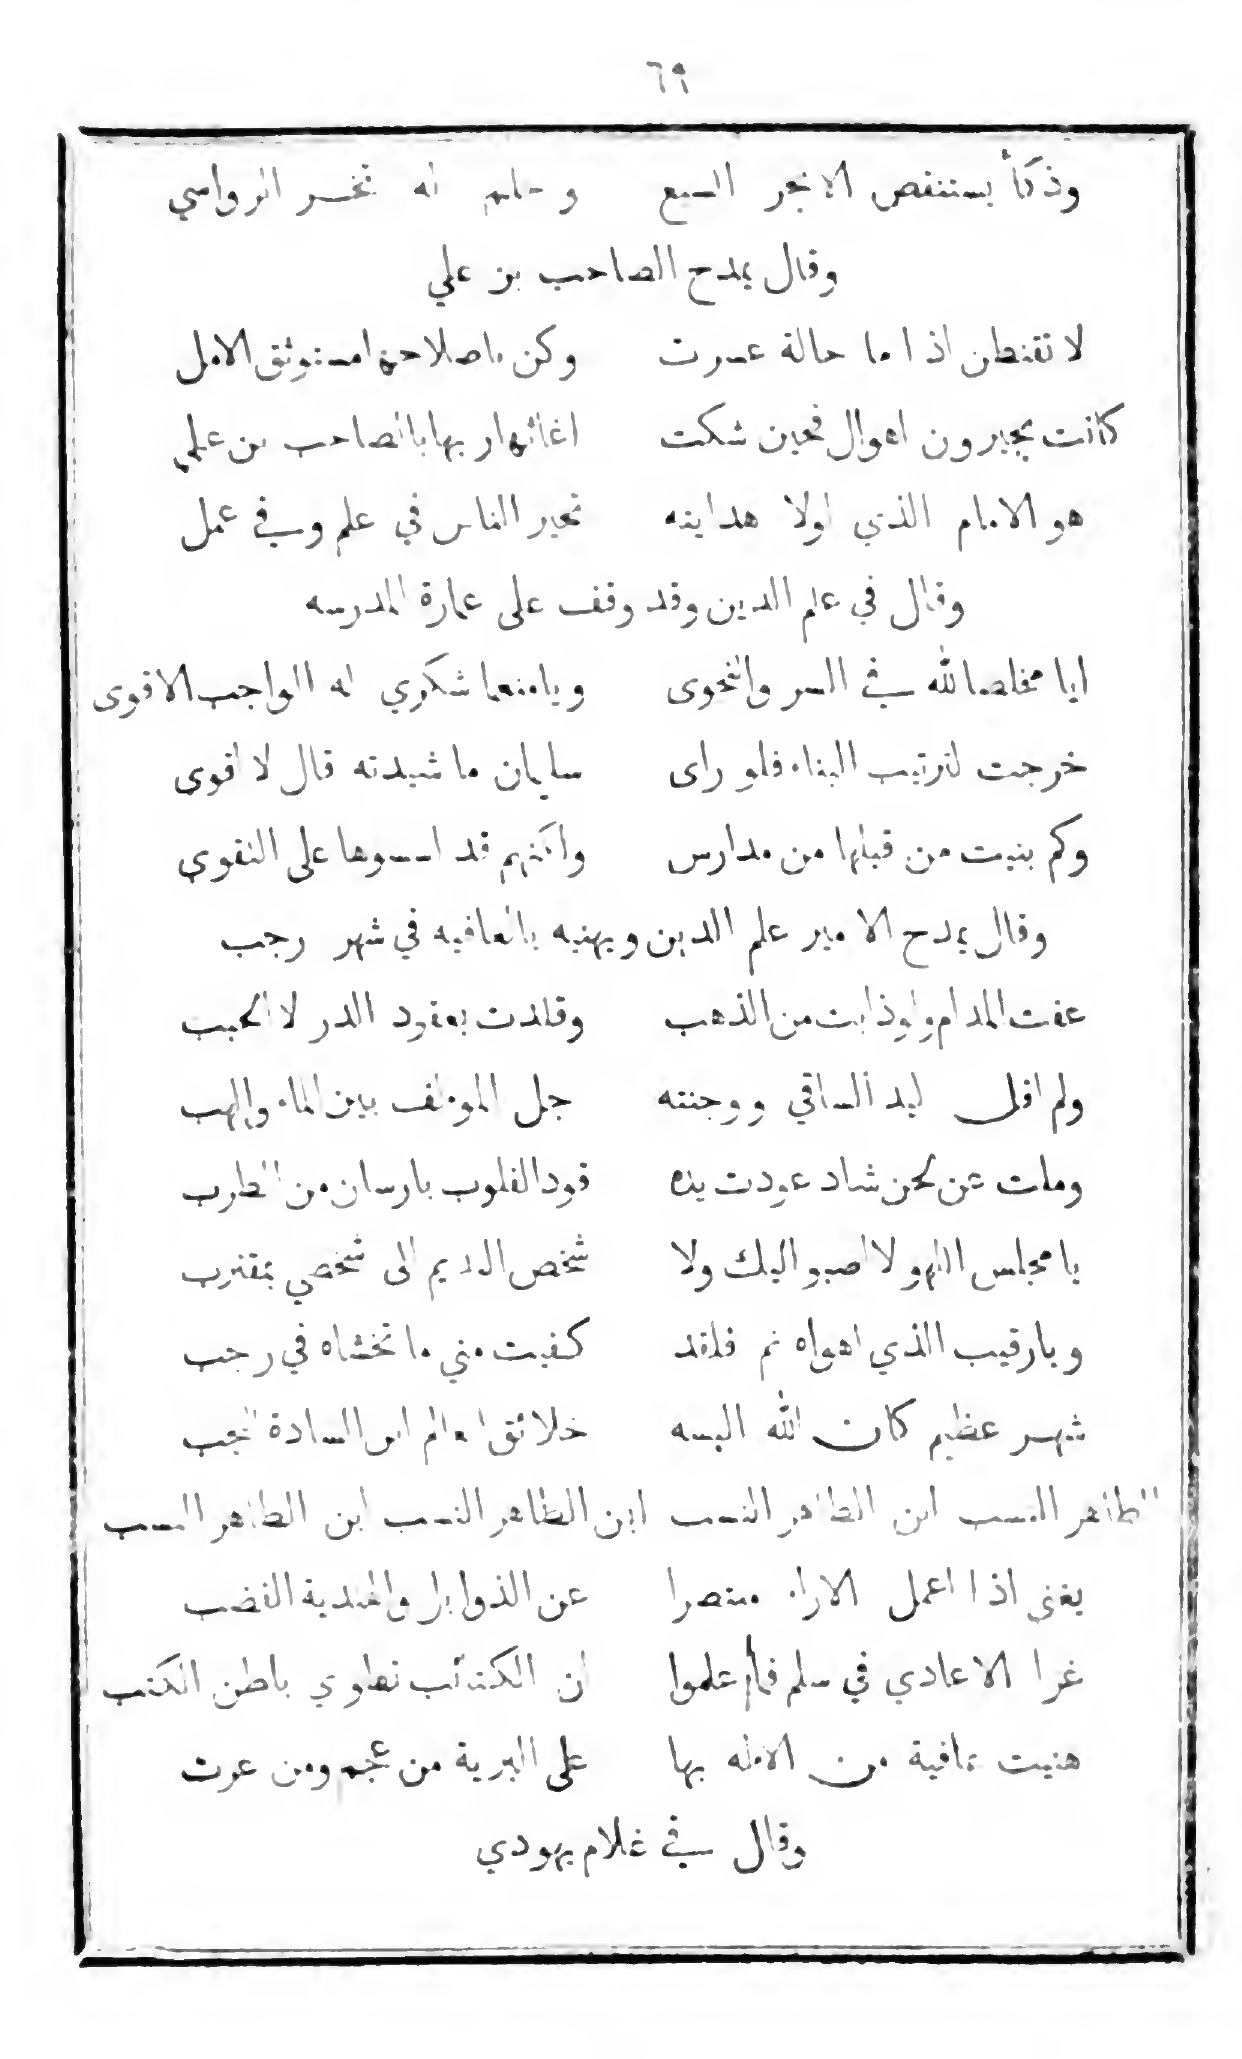 ٦٩
وذكأ يستنقص الابحر السبع وحلم له تخسر الرواسي
وقال يمدح الصاحب بن علي
لا تقنطن اذا ما حالة عسرت وكن باصلاحها مستوثق الامل
كانت بجيرون اهوال فحين شكت اغاثها ربها بالصاحب بن علي
هو الامام الذي لولا هدايته تحير الناس في علم وفي عمل
وقال في علم الدين وقد وقف على عمارة المدرسه
ايا مخلصا لله في السر والنجوى ويا منعما شكري له الواجب الاقوى
خرجت لترتيب البناء فلو راى سليمان ما شيدته قال لا اقوى
وكم بنيت من قبلها من مدارس ولكنهم قد اسسوها على التقوى
وقال يمدح الامير علم الدين ويهنيه بالعافيه في شهر رجب
عفت المدام ولو ذابت من الذهب وقلدت بعقود الدر لا الحبب
ولم اقل ليد الساقي ووجنته جل المولف بين الماء واللهب
وملت عن لحن شاد عودت يده قود القلوب بارسان من الطرب
يا مجلس اللهو لا اصبو اليك ولا شخص النديم الى شخصي بمقترب
ويا رقيب الذي اهواه نم فلقد كفيت مني ما تخشاه في رجب
شهر عظيم كان الله البسه خلائق العالم ابن السادة النجب
الطاهر النسب ابن الطاهر النسب ابن الطاهر النسب ابن الطاهر النسب
يغني اذا اعمل الاراء منتصرا عن الذوابل والهندية القضب
غزا الاعادي في سلم فما علموا ان الكتائب تطوي باطن الكتب
هنيت عافية من الاله بها على البرية من عجم ومن عرب
وقال في غلام يهودي